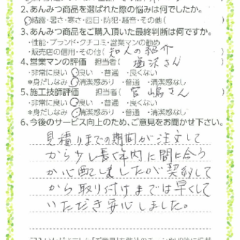 2.あんみつ商品を選ばれた際の悩みは何でしたか。
結露・暑さ・寒さ・窓目・防犯・経売・その他(
3.あんみつ商品をご購入頂いた最終判断は何ですか。
・性能・ブランド・クチコミ・営業マンの勧め
・販売店の信用・その他( 知人の紹介
4.営業マンの評価 担当者
・非常に良い 良い ・普通 ・良くない
*身だしなみ オシャレ ・普通 ・清潔感なし
5.施工技師評価 担当者( 宮嶋さん
・非常に良い 良い ・普通 ・良くない
*身だしなみ オシャレ ・普通 ・清潔感なし
6.今後のサービス向上のため、ご意見をお聞かせ下さい。
見積りまでの期間が注文して
から少し長く年内に間に合う
か心配しましたが契約して
から取り付けまでは早くして
いただき安心しました。